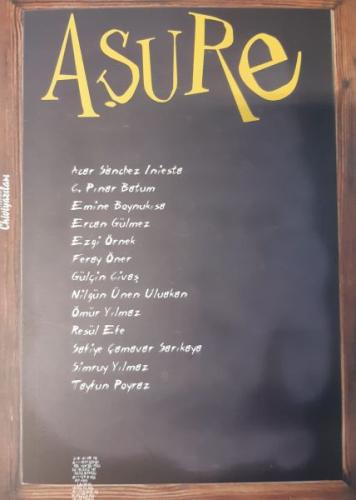 AŞURE
Acar Sanchez Iniesta
C. Pınar Batum
Emine Boynukısa
Ercan Gülmez
Ezgi Örnek
Feray Öner
Gülçin Civaş
Nilgün Ünen Uluakan
Ömür Yılmaz
Resül Efe
Safiye Çamavar Sarıkaya
Simruy Yılmaz
Tayfun Poyraz
Chiviyazıları